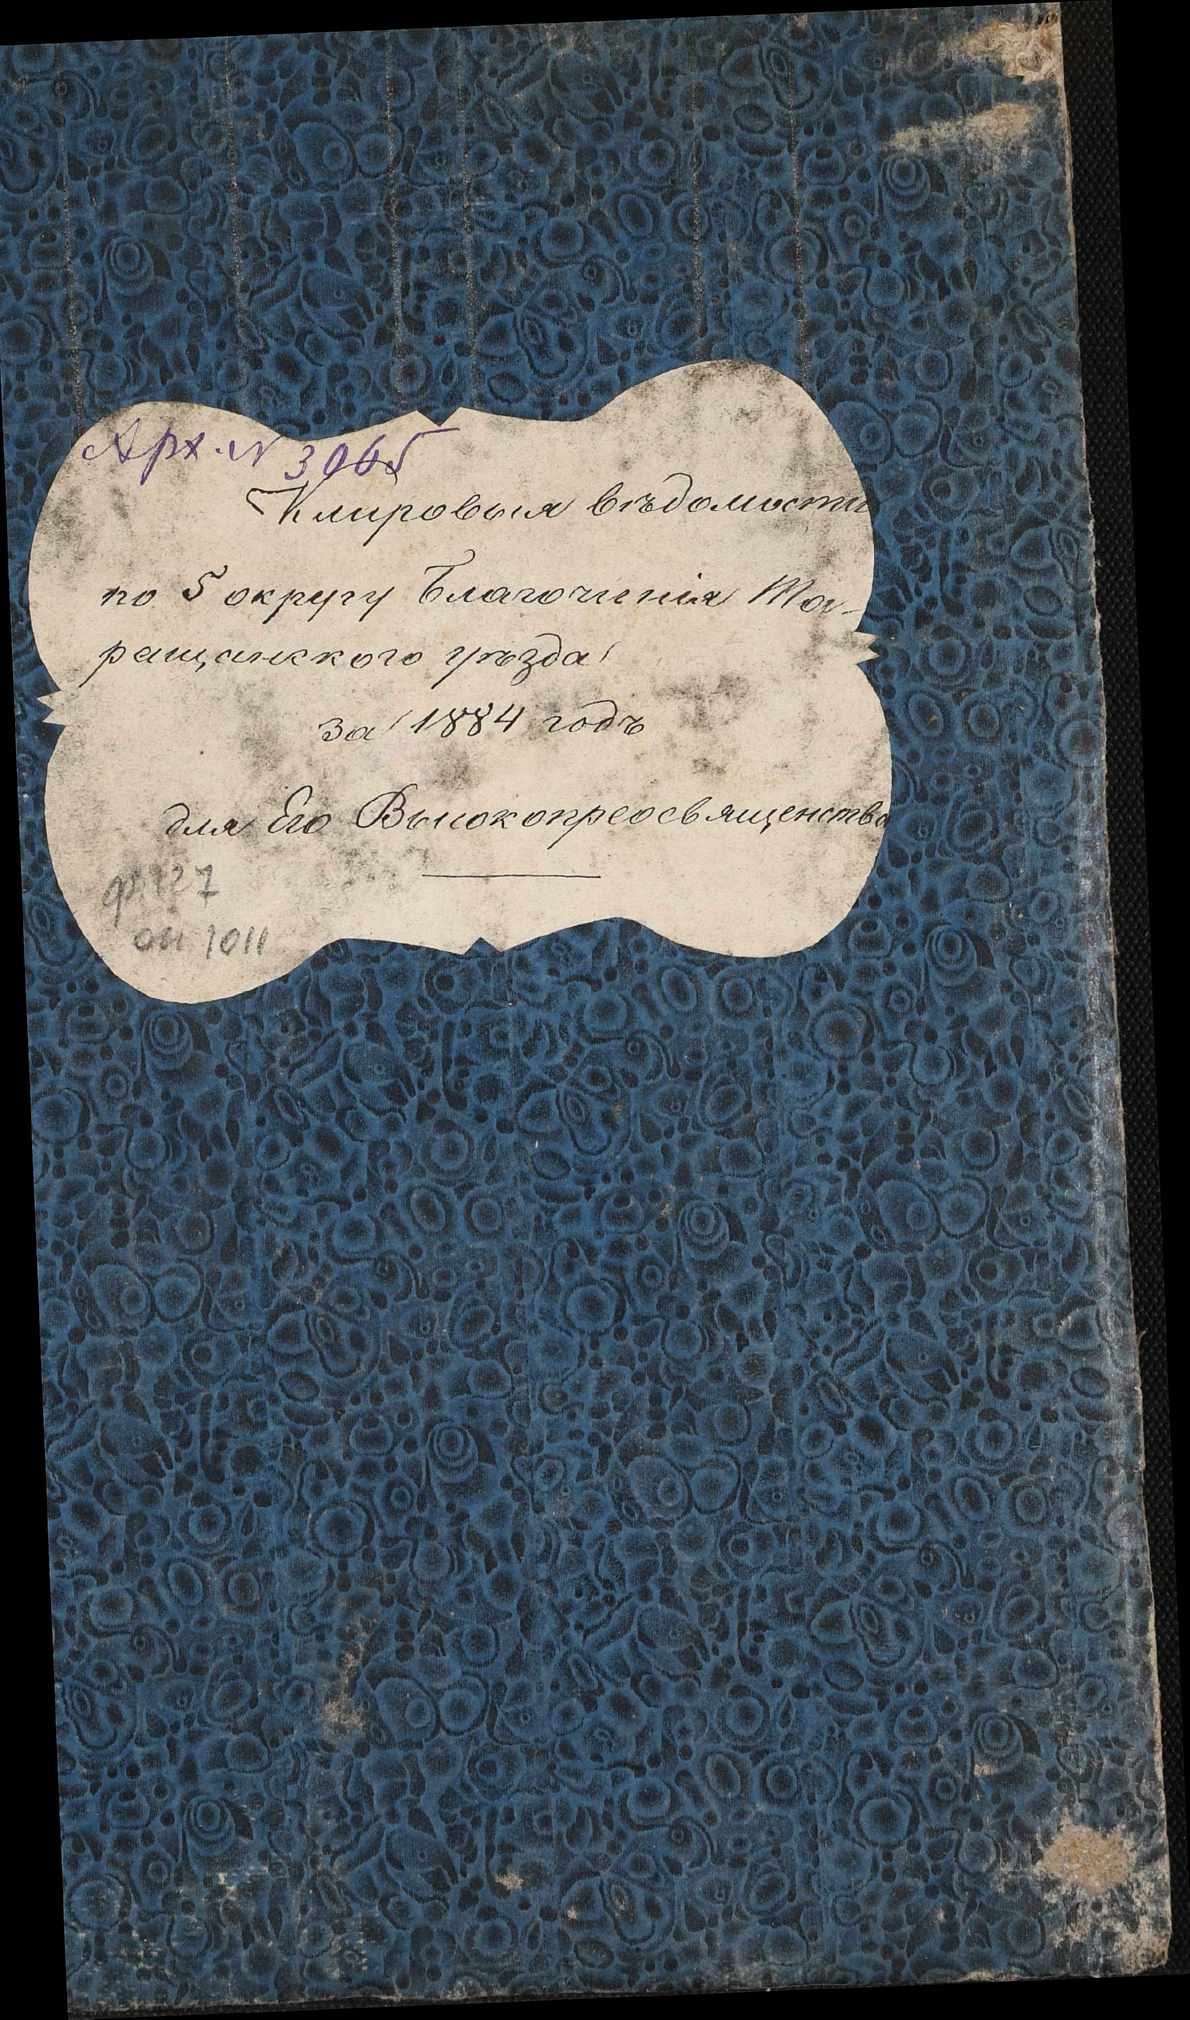 Арх. N 3065
Клировыя вѣдомости
по 5 округу Благочинія Та-
ращанского уѣзда
за 1884 годъ
для Его Высокопреосвященства
ф 127
оп 1011